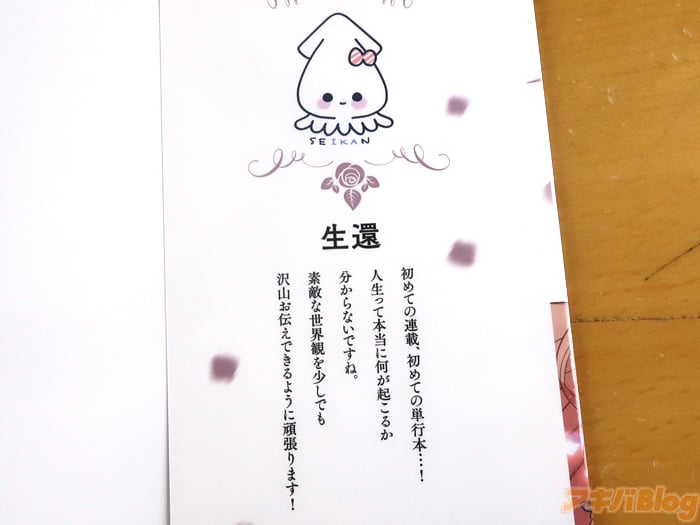 SEIKAN
生還
初めての連載、初めての単行本…！
人生って本当に何が起こるか
分からないですね。
素敵な世界観を少しでも
沢山お伝えできるように頑張ります！
アキバBlog